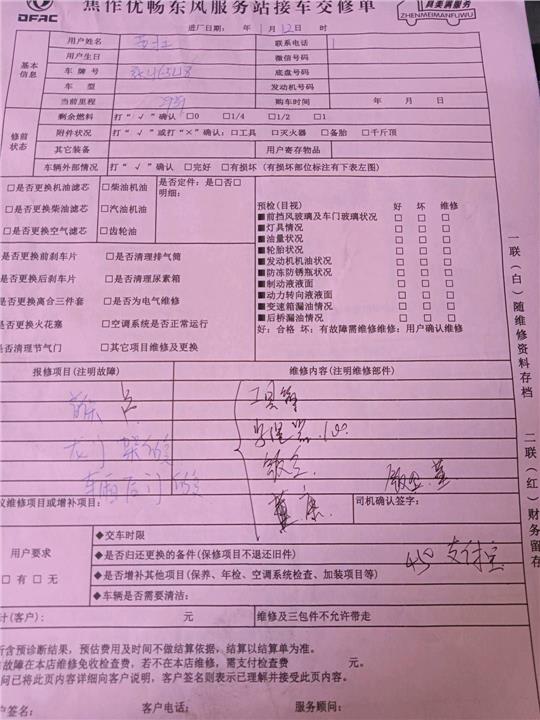 DFAC
焦作优畅东风服务站接车交修单
真美满服务
ZHENMEIMANFUWU
进厂日期: 年 1月 12日 时
基本信息
用户姓名 联系电话 1
用户生日 微信号码
车牌号 底盘号码
车 型 发动机号码
当前里程 购车时间 年 月 日
修前状态
剩余燃料 打“√”确认 □0 □1/4 □1/2 □1
附件状况 打“√”或打“×”确认: □工具 □灭火器 □备胎 □千斤顶
其它装备 用户寄存物品
车辆外部情况 打“√”确认 □完好 □有损坏 (有损坏部位标注有下表左图)
□是否更换机油滤芯 □柴油机油 是否定件: 是□否□
明细:
□是否更换柴油滤芯 □汽油机油
□是否更换空气滤芯 □齿轮油
预检(目视) 好 坏 维修
■前挡风玻璃及车门玻璃状况 □ □ □
■灯具情况 □ □ □
■油量状况 □ □ □
■轮胎状况 □ □ □
■发动机机油状况 □ □ □
■防冻防锈瓶状况 □ □ □
■制动液液面 □ □ □
■动力转向液液面 □ □ □
■变速箱漏油情况 □ □ □
■后桥漏油情况 □ □ □
好: 合格 坏: 有故障需维修维修: 用户确认维修
是否更换前刹车片 □是否清理排气筒
是否更换后刹车片 □是否清理尿素箱
是否更换离合三件套 □是否为电气维修
是否更换火花塞 □空调系统是否正常运行
是否清理节气门 □其它项目维修及更换
报修项目(注明故障) 维修内容(注明维修部件)
工具箱
钣金
车厢后门
议维修项目或增补项目: 司机确认签字:
用户要求
□有 □无
◆交车时限
◆是否归还更换的备件(保修项目不退还旧件)
◆是否增补其他项目(保养、年检、空调系统检查、加装项目等)
◆车辆是否需要清洁:
450 支付
计(客户): 元 维修及三包件不允许带走
所含预诊断结果，预估费用及时间不做结算依据，结算以结算单为准。
故障在本店维修免收检查费，若不在本店维修，需支付检查费 元。
问已将此页内容详细向客户说明，客户签名则表示已理解并接受此页内容。
户签名: 客户电话: 服务顾问:
一联(白)随维修资料存档 二联(红)财务留存